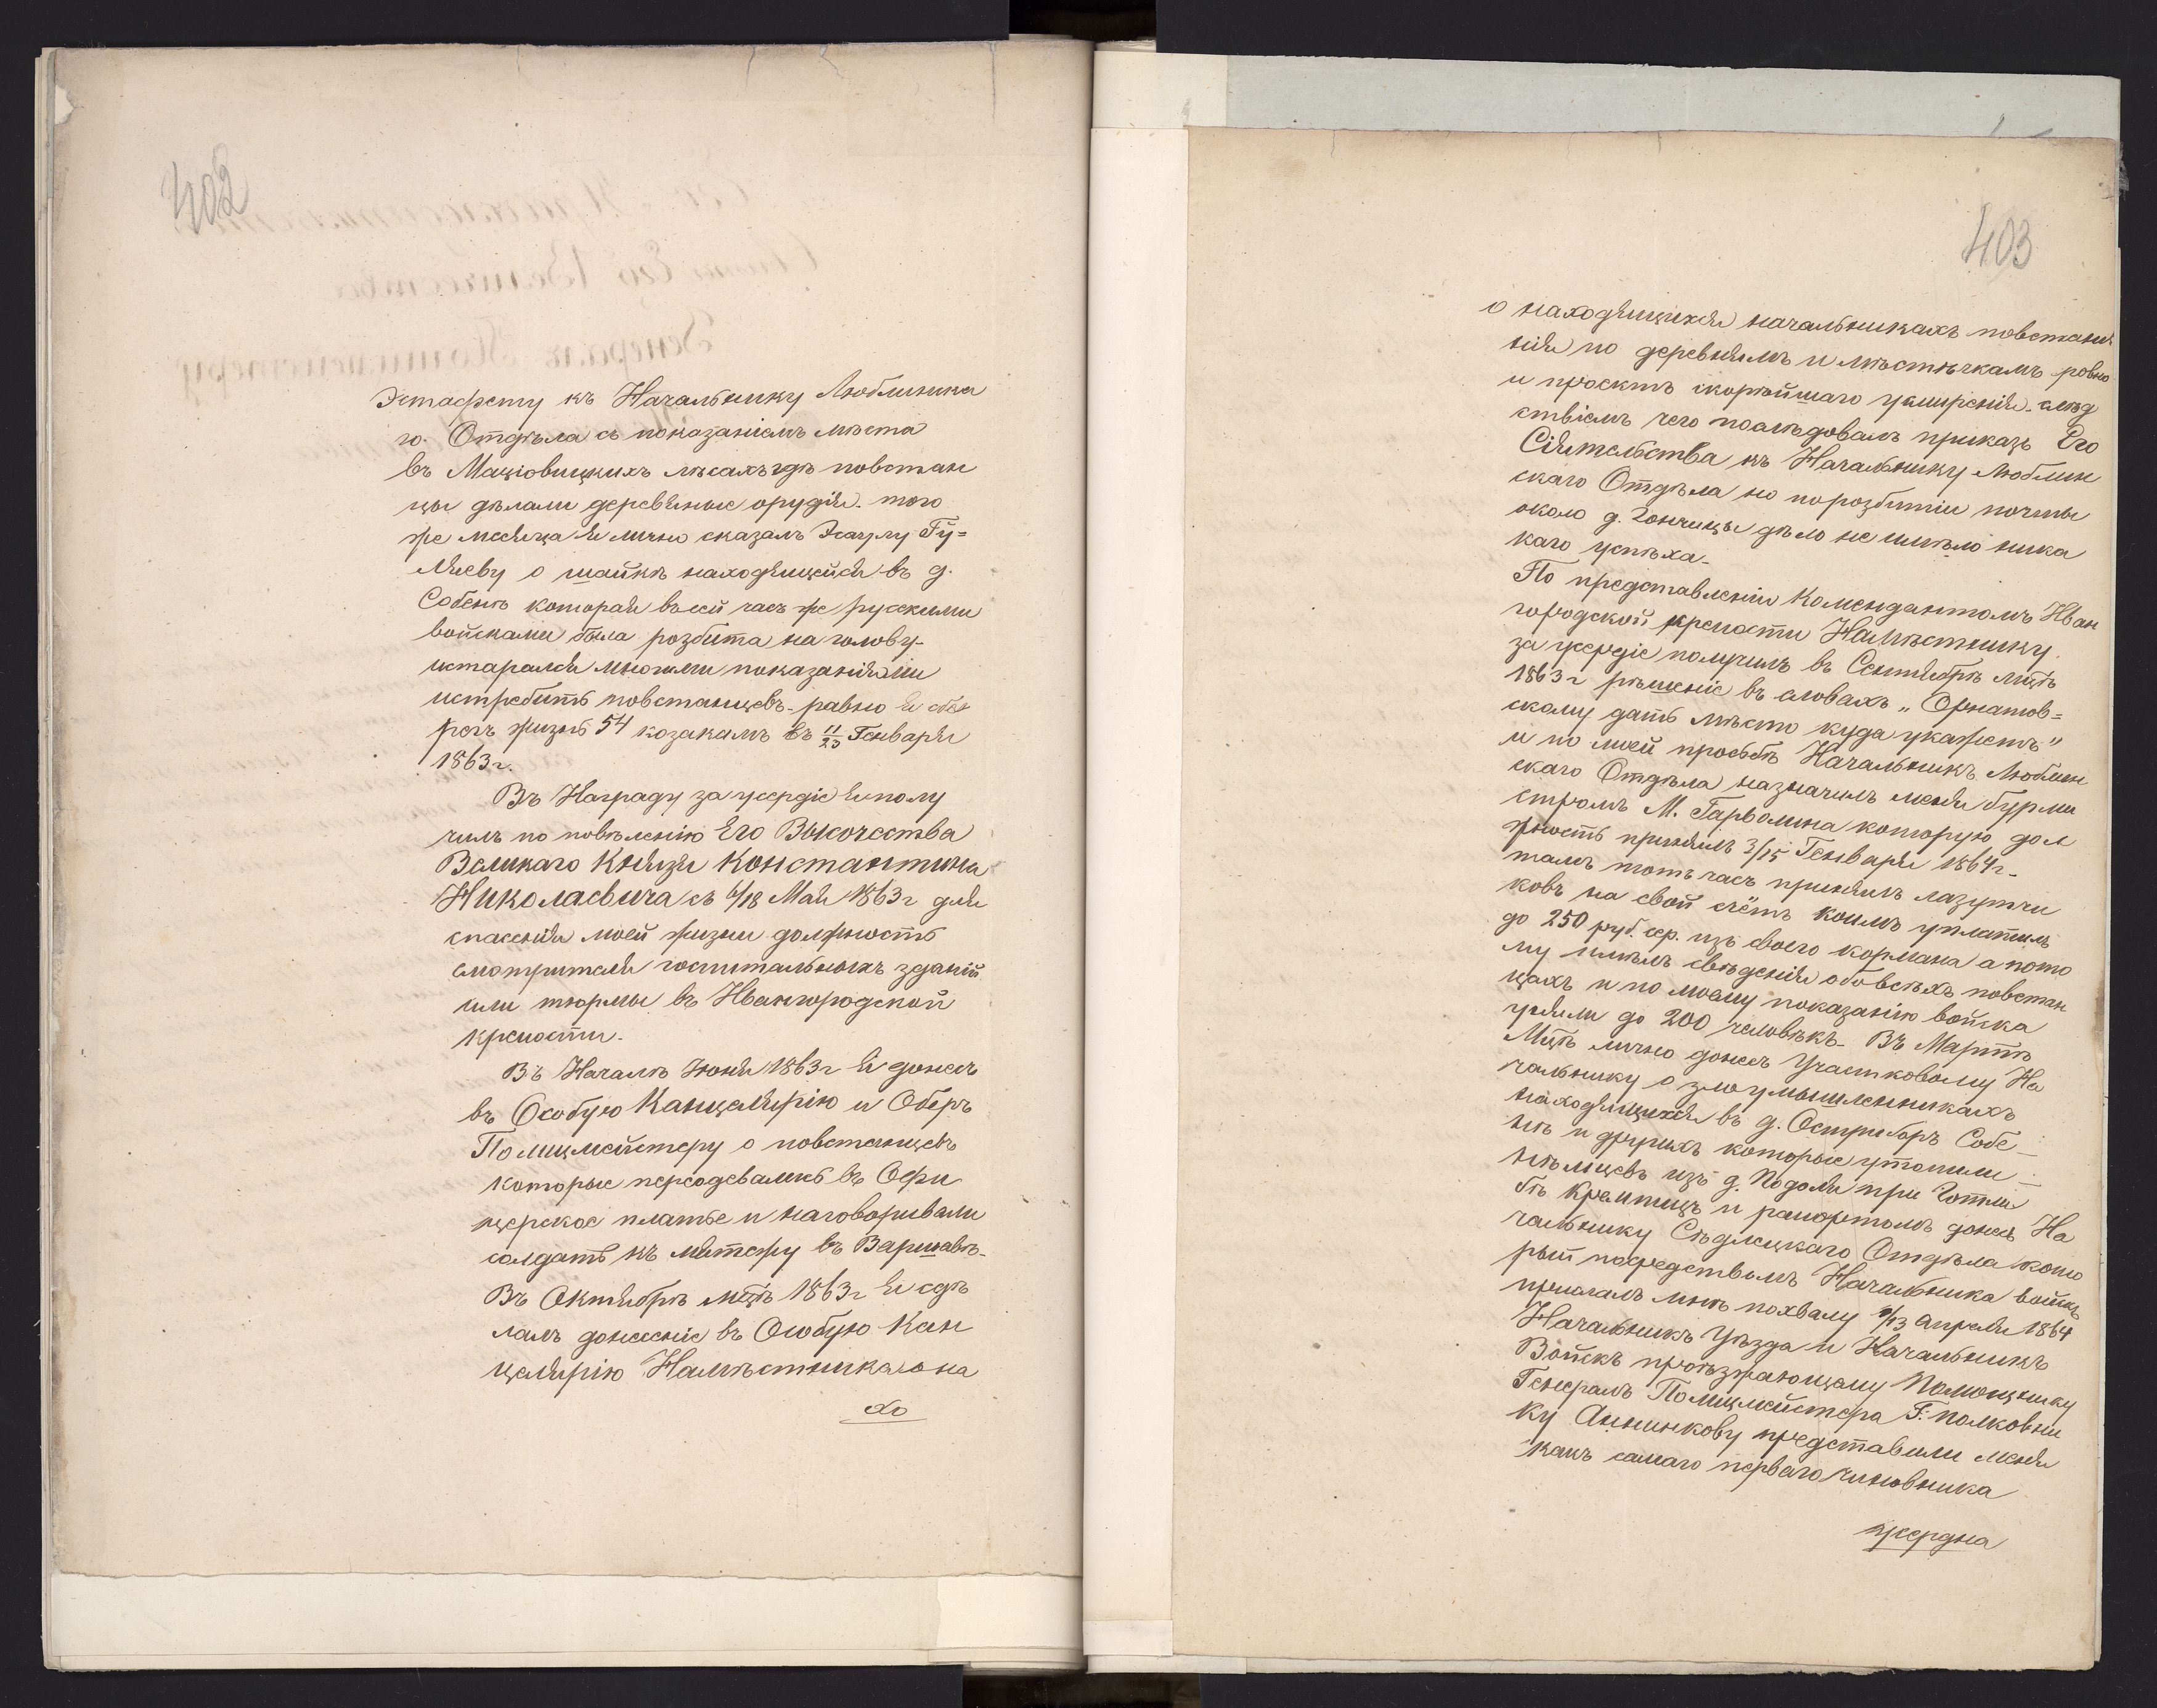 402
Эстафету къ Начальнику Люблинска
го Отдѣла съ показаніемъ мѣста
въ Маціовицкихъ лѣсахъ гдѣ повстан
цы дѣлали деревяные орудія. того
же месяца я лично сказалъ Эсаулу Гу=
ляеву о шайкѣ находящейся въ д.
Собенѣ которая въ сей часъ же русскими
войсками была розбита на голову-
и старался многими показаніями
истребить повстанцевъ- равно я сбе
регъ жизнь 54 козакамъ въ 11/23 Генваря
1863г.
Въ Награду за усердіе я полу
чилъ по повѣленію Его Высочества
Великаго Князя Константина
Николаевича съ 6/18 Мая 1863г для
спасенія моей жизни должность
смотрителя госпитальныхъ зданій
или тюрмы въ Ивангородской
крепости.
Въ Началѣ Іюня 1863г я донесъ
въ Особую Канцелярію и Оберъ
Полицмейстеру о повстанцевъ
которые переодевались въ Офи
церское платье и наговоривали
солдатъ къ мятежу въ Варшавѣ-
Въ Октябрѣ мцѣ 1863г я сдѣ
лалъ донесеніе въ Особую Кан
целярію Намѣстника о на
хо
403
о находящихся начальникахъ повстани
нія по деревнямъ и мѣстѣчкамъ ровно
и проэктъ скорѣйшаго усмиренія. слѣд
ствіемъ чего послѣдовалъ приказъ Его
Сіятельства къ Начальнику Люблин
скаго Отдѣла но по розбитіи почты
около д. Гончицы дѣло не имѣло ника
каго успѣха-
По представленіи Комендантомъ Иван
городской крепости Намѣстнику
за усердіе получилъ въ Сентябрѣ мцѣ
1863г рѣшеніе въ словахъ „Орнатов=
скому дать мѣсто куда укажетъ"
и по моей просьбѣ Начальникъ Люблин
скаго Отдѣла назначилъ меня бурми
стромъ М. Гарволина которую дол
жность принялъ 3/15 Генваря 1864г-
тамъ тотъ часъ принялъ лазутчи
ковъ на свой счётъ коимъ уплатилъ
до 250 руб. сер. изъ своего кормана а пото
му имѣлъ свѣденія обо всѣхъ повстан
цахъ и по моему показанію войска
уняли до 200 человѣкъ- Въ Мартѣ
Мцѣ лично донесъ Участковому На
чальнику о злоумышленникахъ
находящихся въ д. Остриборъ Собе-
нѣ и другихъ которые утопили
нѣмцевъ изъ д. Подоля при Готли
бѣ Кремтицъ и рапортомъ донесъ На
чальнику Сѣдлецкаго Отдѣла кото
рый посредствомъ Начальника войскъ
прислалъ мнѣ похвалу 1/13 апреля 1864
Начальникъ Уѣзда и Начальникъ
Войскъ проѣзжающему Помощнику
Генералъ Полицмейстера Г: Полковни
ку Анинкову представили меня
какъ самаго перваго чиновника
усердна